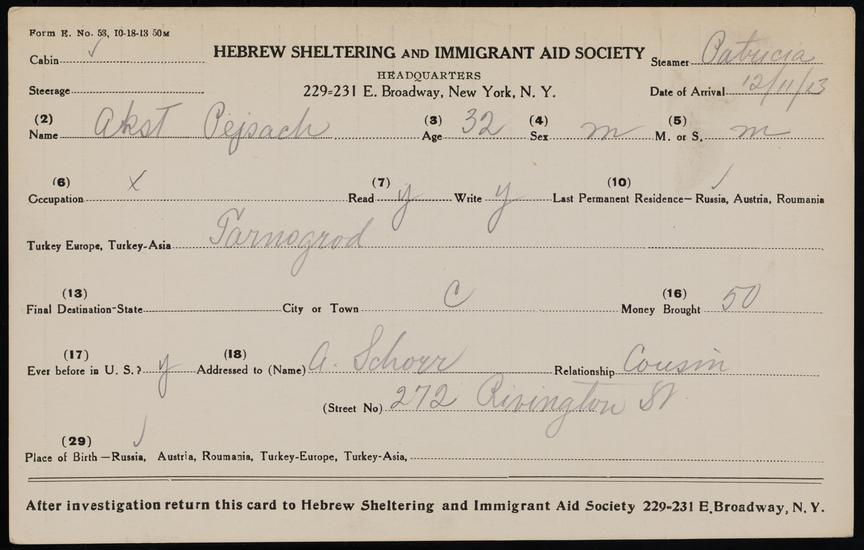 Form E. No. 53, 10-18-13 50M
Cabin ✓ HEBREW SHELTERING AND IMMIGRANT AID SOCIETY Steamer Patricia
HEADQUARTERS
Steerage 229-231 E. Broadway, New York, N. Y. Date of Arrival 12/11/13
(2) (3) (4) (5)
Name Akst Pejsach Age 32 Sex m M. or S. m
(6) x (7) (10) ✓
Occupation Read y Write y Last Permanent Residence—Russia, Austria, Roumania
Turkey Europe, Turkey-Asia Tarnogrod
(13) (16)
Final Destination-State City or Town C Money Brought 50
(17) (18)
Ever before in U. S.? y Addressed to (Name) A. Schorr Relationship Cousin
(Street No) 272 Rivington St.
(29) ✓
Place of Birth—Russia, Austria, Roumania, Turkey-Europe, Turkey-Asia,
After investigation return this card to Hebrew Sheltering and Immigrant Aid Society 229-231 E. Broadway, N. Y.